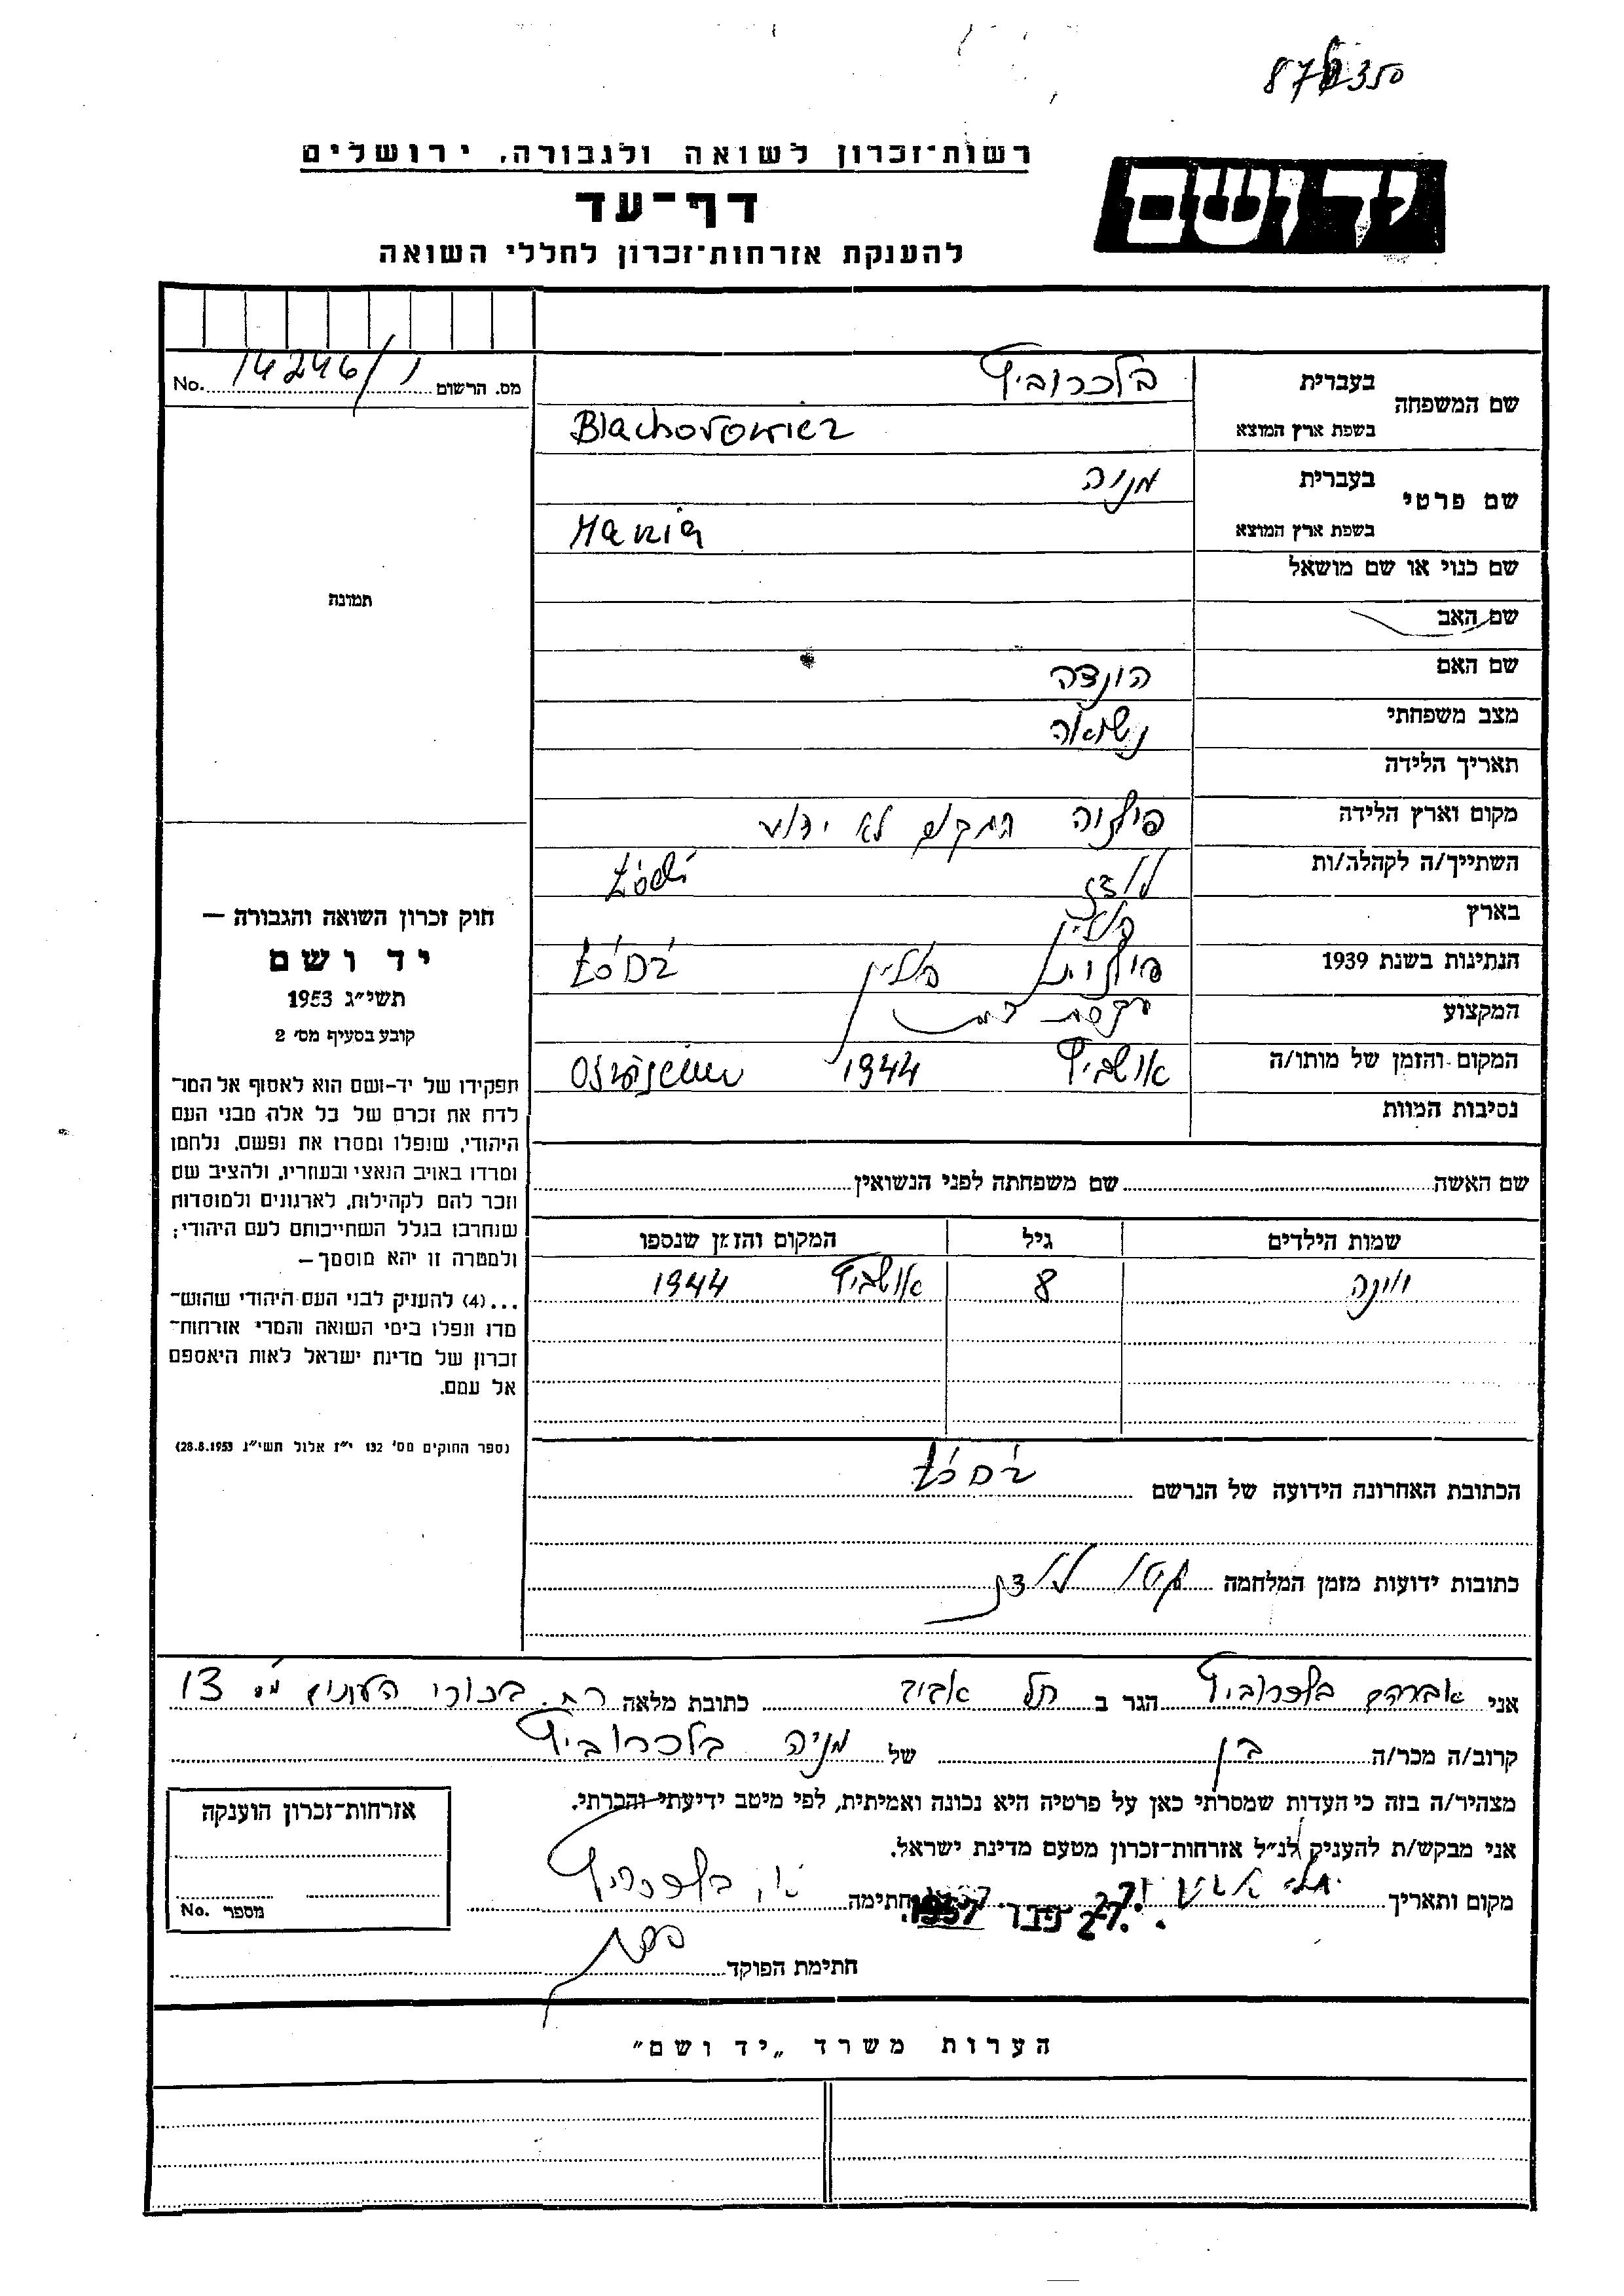 87350
רשות־זכרון לשואה ולגבורה, ירושלים
יד ושם
דף־עד
להענקת אזרחות־זכרון לחללי השואה
No. 14246/1 מס. הרשום
שם המשפחה
בעברית בלכרוביץ
בשפת ארץ המוצא Blachorowicz
שם פרטי
בעברית מניה
בשפת ארץ המוצא Mania
שם כנוי או שם מושאל
שם האב
שם האם הונצה
מצב משפחתי נשואה
תאריך הלידה
מקום וארץ הלידה פולניה המקום לא ידוע
השתייך/ה לקהלה/ות לודז Łódź
בארץ פולין
הנתינות בשנת 1939 פולנית פולין Łódź
המקצוע עקרת בית
המקום והזמן של מותו/ה אושביץ 1944
נסיבות המוות
תמונה
חוק זכרון השואה והגבורה —
יד ושם
תשי״ג 1953
קובע בסעיף מס׳ 2
תפקידו של יד-ושם הוא לאסוף אל המו־
לדת את זכרם של כל אלה מבני העם
היהודי, שנפלו ומסרו את נפשם, נלחמו
ומרדו באויב הנאצי ובעוזריו, ולהציב שם
וזכר להם לקהילות, לארגונים ולמוסדות
שנחרבו בגלל השתייכותם לעם היהודי;
ולמטרה זו יהא מוסמך—
...(4) להעניק לבני העם היהודי שהוש־
מדו ונפלו בימי השואה והמרי אזרחות־
זכרון של מדינת ישראל לאות היאספם
אל עמם.
(ספר החוקים מס׳ 132 י״ז אלול תשי״ג 28.8.1953)
שם האשה שם משפחתה לפני הנשואין
שמות הילדים גיל המקום והזמן שנספו
8 אושביץ 1944
הכתובת האחרונה הידועה של הנרשם Łódź
כתובות ידועות מזמן המלחמה גטו לודז
אני אברהם בלכרוביץ הגר ב תל אביב כתובת מלאה רח. בכורי העתים מס 13
קרוב/ה מכר/ה בן של מניה בלכרוביץ
מצהיר/ה בזה כי העדות שמסרתי כאן על פרטיה היא נכונה ואמיתית, לפי מיטב ידיעתי והכרתי.
אני מבקש/ת להעניק לנ״ל אזרחות־זכרון מטעם מדינת ישראל.
מקום ותאריך תל אביב 27. פבר 1957 חתימה א. בלכרוביץ
חתימת הפוקד
אזרחות־זכרון הוענקה
No. מספר
הערות משרד „יד ושם״